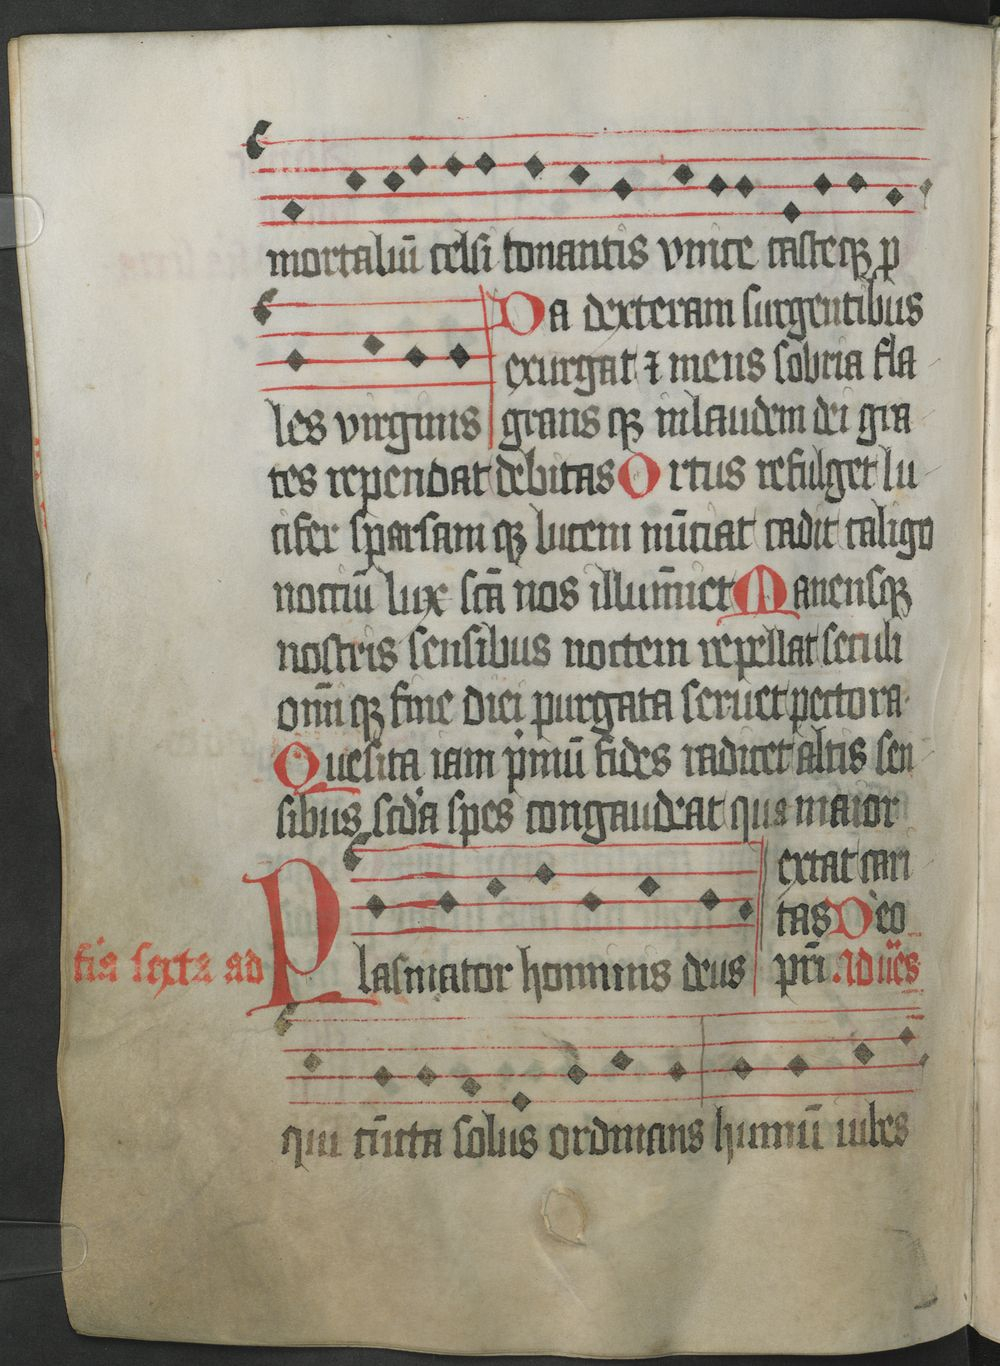 mortaliū celsi tonantis vnice casteqꝫ ꝓ
les virginis
Da dexteram surgentibus
exurgat ⁊ mens sobria fla
grans qꝫ in laudem dei gra
tes rependat debitas Ortus refulget lu
cifer sparsam qꝫ lucem nūciat cadit caligo
noctiū lux scā nos illumīet Manensqꝫ
nostris sensibus noctem repellat seculi
omīqꝫ fine diei purgata seruet pectora
Quesita iam pͥmū fides radicet altis sen
sibus scd'a spes congaudeat qua maior
extat cari
tas Deo
pr̄i. Ad ūēs
fīa sexta ad
Plasmator hominis deus
qui cūcta solus ordinans humū iubes